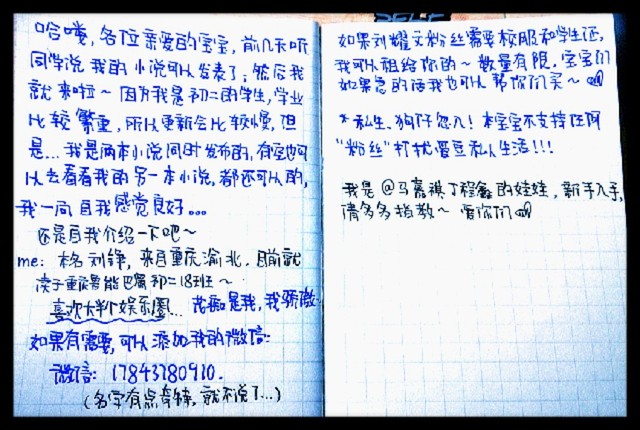 哈喽，各位亲爱的宝宝，前几天听
同学说我的小说可以发表了，然后我
就来啦～因为我是初二的学生，学业
比较繁重，所以更新会比较慢，但
是…我是两本小说同时发布的，有空也可
以去看看我的另一本小说，都还可以的，
我一向自我感觉良好…
还是自我介绍一下吧～
me：本名刘锦，来自重庆渝北，目前就
读于重庆鲁能巴蜀初二18班～
喜欢大半个娱乐圈…花痴是我，我骄傲～
如果有需要，可以添加我的微信：
微信：17843780910.
（名字有点奇特，就不说了…）
SELF
如果刘耀文粉丝需要校服和学生证，
我可以租给你的～数量有限，宝宝们
如果急的话我也可以帮你们买～
*私生、狗仔忽入！本宝宝不支持任何
“粉丝”打扰爱豆私人生活！！！
我是@马嘉祺丁程鑫的娃娃，新手入手，
请多多指教～爱你们